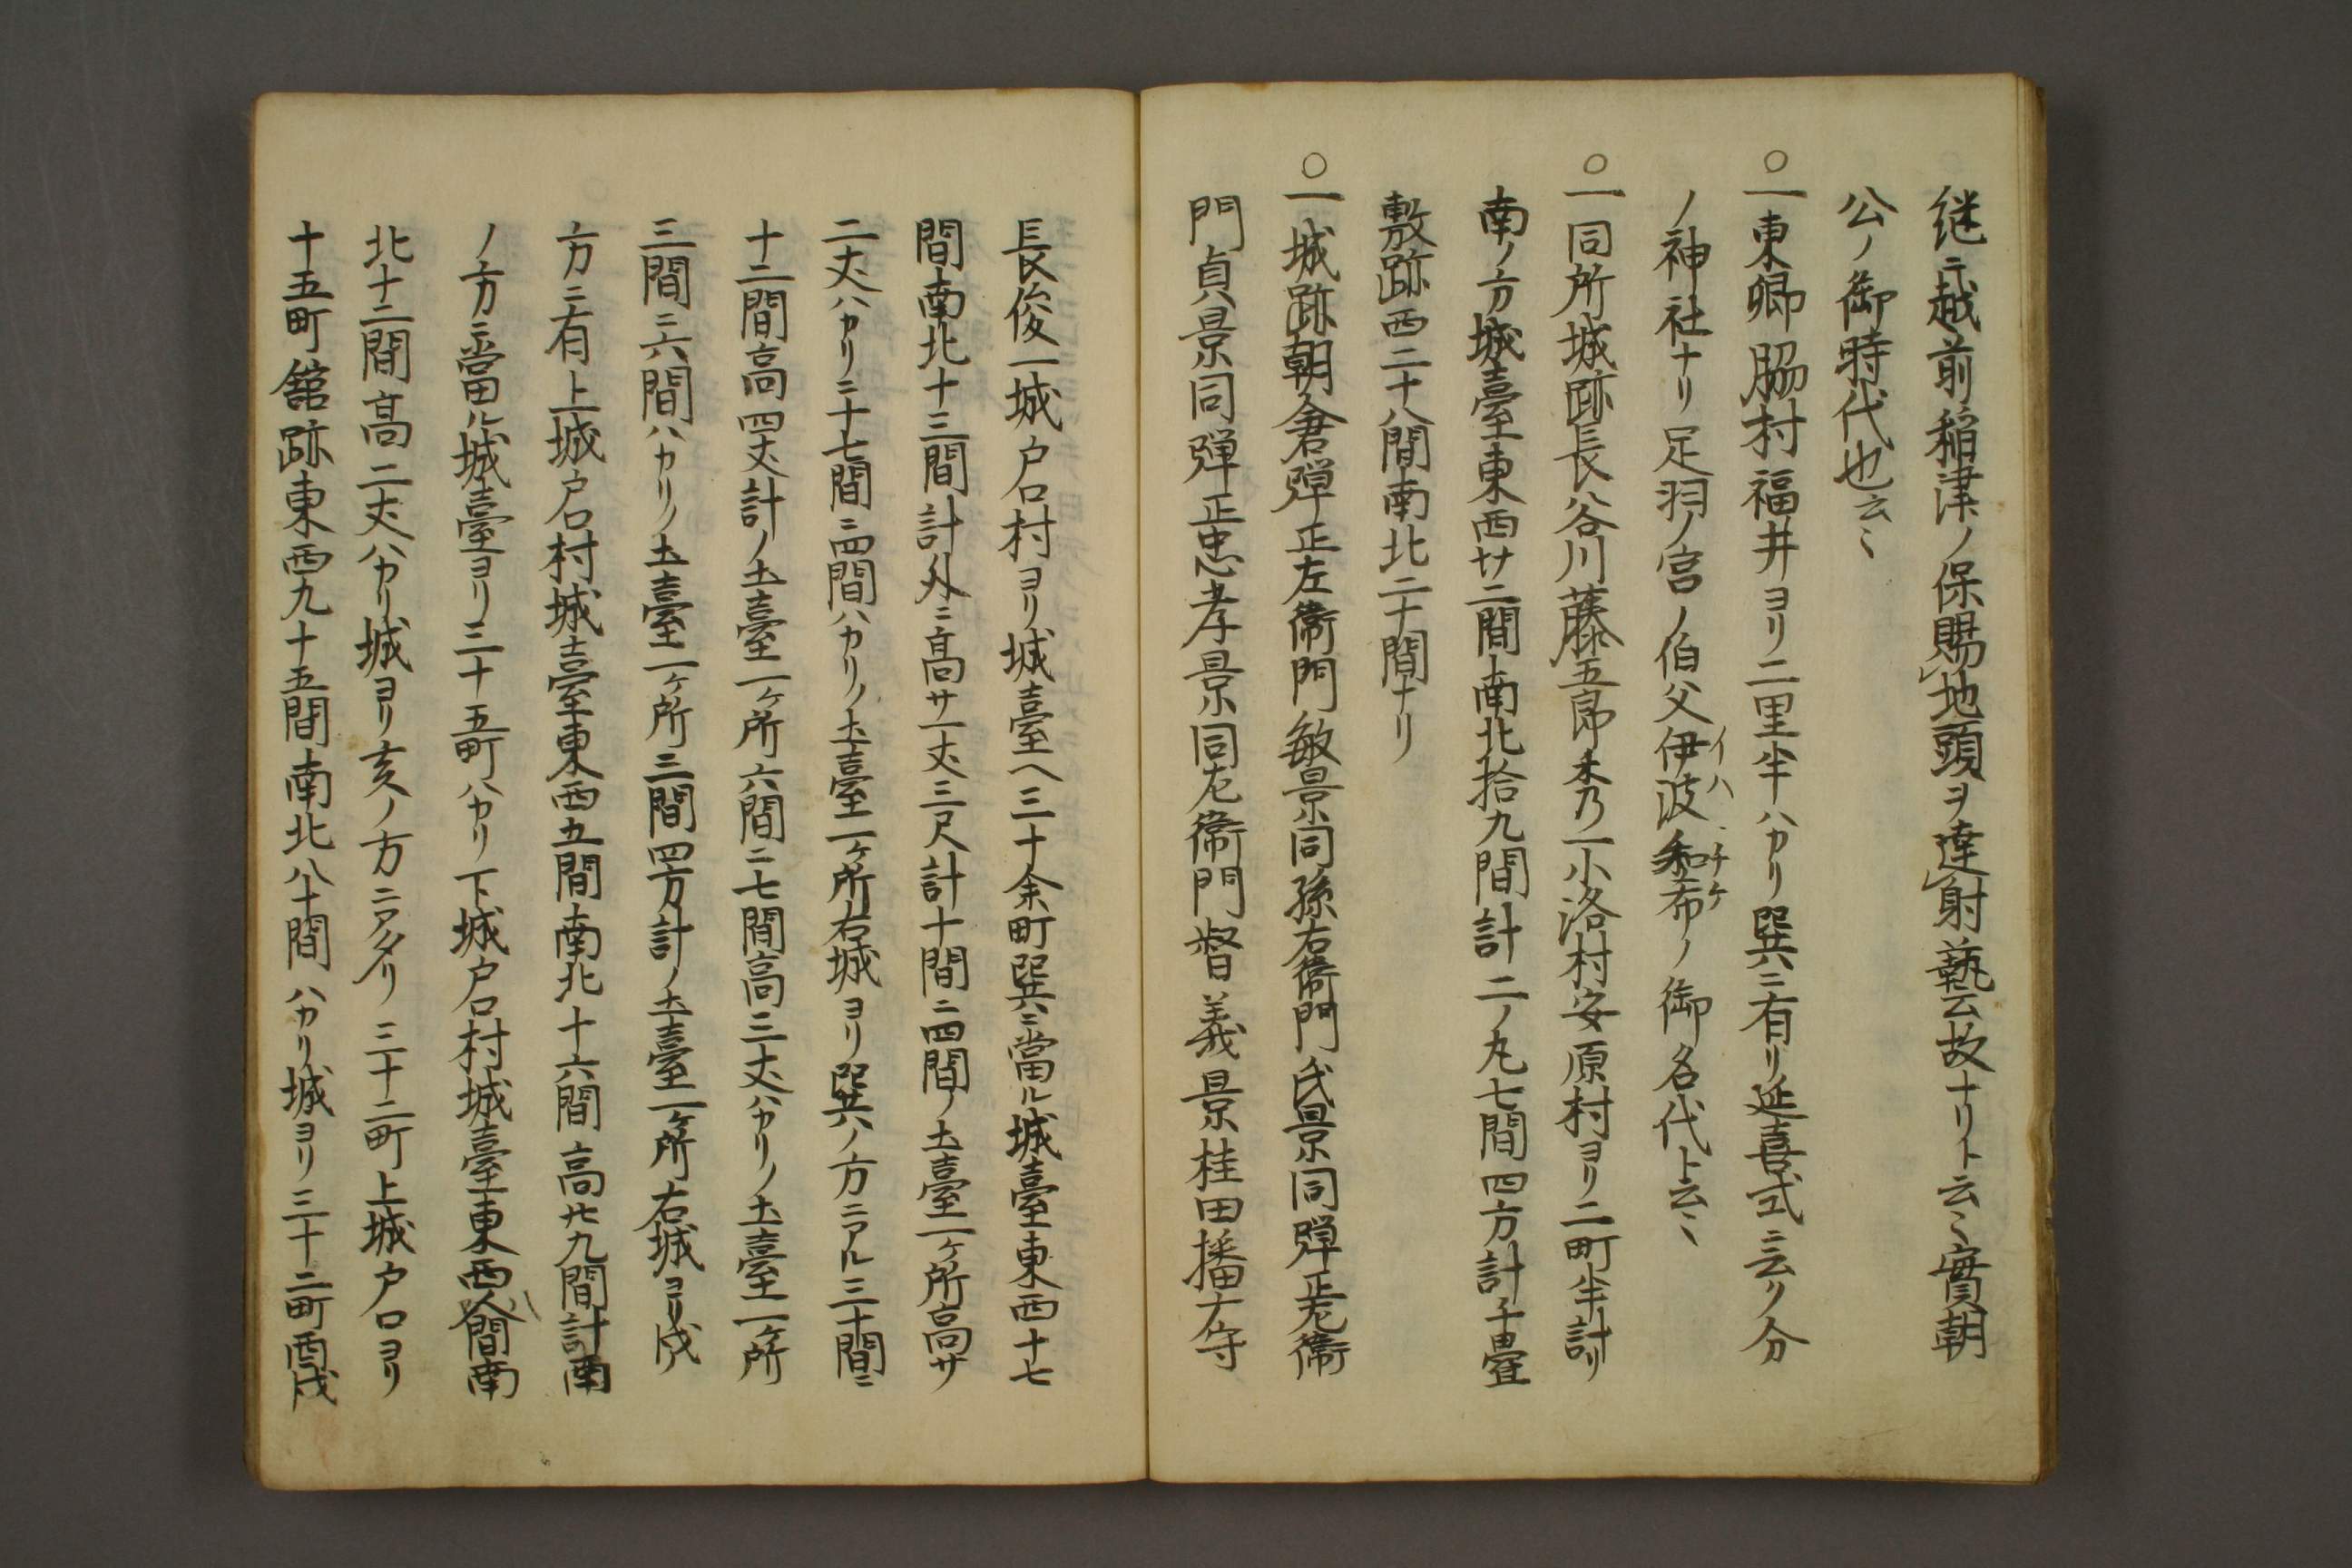 継ニ越前稲津ノ保賜地頭ヲ達射藝云故ナリト云〻實朝
公ノ御時代也云〻
○一東郷脇村福井ヨリ二里半ハカリ巽ニ有リ延喜式ニ云リ分
ノ神社ナリ足羽ノ宮ノ伯父伊波知和希ノ御名代ト云〻
イハチケ
○一同所城跡長谷川藤五郎秀乃一小洛村安原村ヨリ二町半計リ
南ノ方城臺東西廿二間南北拾九間計二ノ丸七間四方計千畳
敷跡西二十八間南北二十間ナリ
○一城跡朝倉弾正左衛門敏景同孫右衛門氏景同弾正左衛
門貞景同弾正忠孝景同左衛門督義景桂田播磨守
長俊一城戸口村ヨリ城臺ヘ三十余町巽ニ當ル城臺東西十七
間南北十三間計外ニ高サ一丈三尺計十間ニ四間ノ土臺一ケ所高サ
二丈ハカリニ十七間ニ四間ハカリノ土臺一ケ所右城ヨリ巽ノ方ニアル三十間ニ
十二間高四丈計ノ土臺一ケ所六間ニ七間高三丈ハカリノ土臺一ケ所
三間ニ六間ハカリノ土臺一ケ所三間四方計ノ土臺一ケ所右城ヨリ戌
方ニ有上城戸口村城臺東西五間南北十六間高サ九間計南
ノ方ニ當ル城臺ヨリ三十五町ハカリ下城戸口村城臺東西八間南
北十二間高二丈ハカリ城ヨリ亥ノ方ニアタリ三十二町上城戸口ヨリ
十五町舘跡東西九十五間南北八十間ハカリ城ヨリ三十二町酉戌